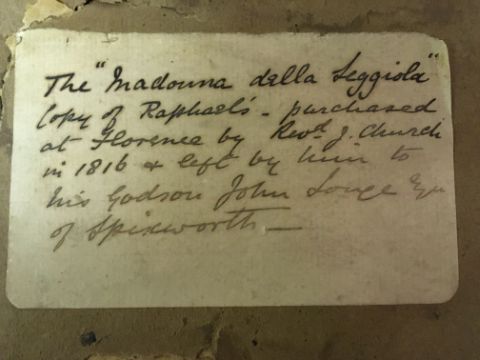 The "Madonna della Seggiola"
Copy of Raphael's - purchased
at Florence by Revd J. Church
in 1816 & left by him to
his Godson John Longe Esqr
of Spixworth —